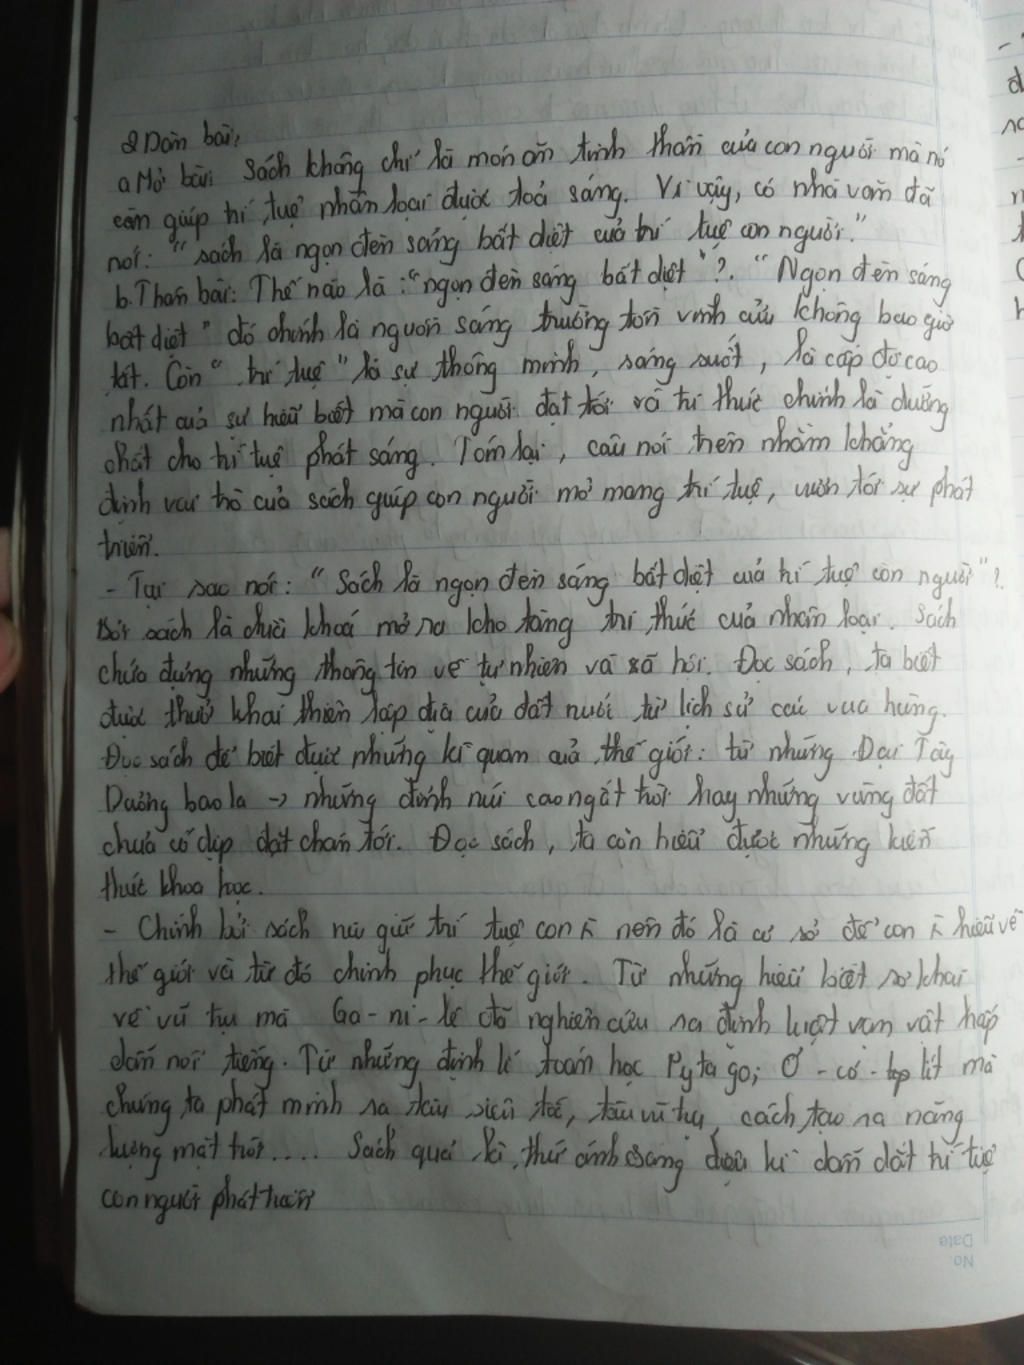 2 Dàn bài:
a. Mở bài: Sách không chỉ là món ăn tinh thần của con người mà nó
còn giúp trí tuệ nhân loại được toả sáng. Vì vậy, có nhà văn đã
nói: "sách là ngọn đèn sáng bất diệt của trí tuệ con người."
b. Thân bài: Thế nào là: "ngọn đèn sáng bất diệt"?. "Ngọn đèn sáng
bất diệt" đó chính là nguồn sáng trường tồn vĩnh cửu không bao giờ
tắt. Còn "trí tuệ" là sự thông minh, sáng suốt, là cấp độ cao
nhất của sự hiểu biết mà con người đạt tới và tri thức chính là dưỡng
chất cho trí tuệ phát sáng. Tóm lại, câu nói trên nhằm khẳng
định vai trò của sách giúp con người mở mang trí tuệ, vươn tới sự phát
triển.
- Tại sao nói: "Sách là ngọn đèn sáng bất diệt của trí tuệ con người"?
Bởi sách là chìa khoá mở ra kho tàng tri thức của nhân loại. Sách
chứa đựng những thông tin về tự nhiên và xã hội. Đọc sách, ta biết
được thuở khai thiên lập địa của đất nước từ lịch sử các vua hùng.
Đọc sách để biết được những kì quan của thế giới: từ những Đại Tây
Dương bao la -> những đỉnh núi cao ngất trời hay những vùng đất
chưa có dịp đặt chân tới. Đọc sách, ta còn hiểu được những kiến
thức khoa học.
- Chính bởi sách níu giữ trí tuệ con ng nên đó là cơ sở để con ng hiểu về
thế giới và từ đó chinh phục thế giới. Từ những hiểu biết sơ khai
về vũ trụ mà Ga-ni-lê đã nghiên cứu ra định luật vạn vật hấp
dẫn nổi tiếng. Từ những định lí toán học Pytago; Ơ-cơ-lít mà
chúng ta phát minh ra tàu siêu tốc, tàu vũ trụ, cách tạo ra năng
lượng mặt trời.... Sách quả là thứ ánh sáng diệu kì dẫn dắt trí tuệ
con người phát triển